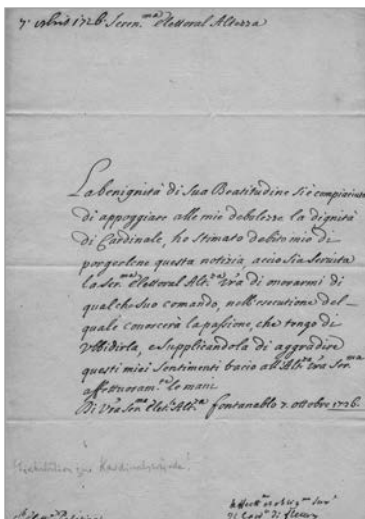 7 8bris 1726. Seren.ma Elettoral Altezza
La benignità di Sua Beatitudine si è compiaciuta
di appoggiare alle mie debolezze la dignità
di Cardinale, ho stimato debito mio di
porgerlene questa notizia, acciò sia servita
la Ser.ma Elettoral Alt.za V̄ra di onorarmi di
qualche suo comando, nell'esecutione del-
quale conoscerà la passione, che tengo di
Vbbidirla, e supplicandola di aggradire
questi miei Sentimenti bacio all'Alt.za V̄ra Ser.ma
affettuosam.te le mani
Di V̄ra Ser.ma Elet.l Alt.za fontanablò 7. ottobre 1726.
Kardinalswürde
di fleury